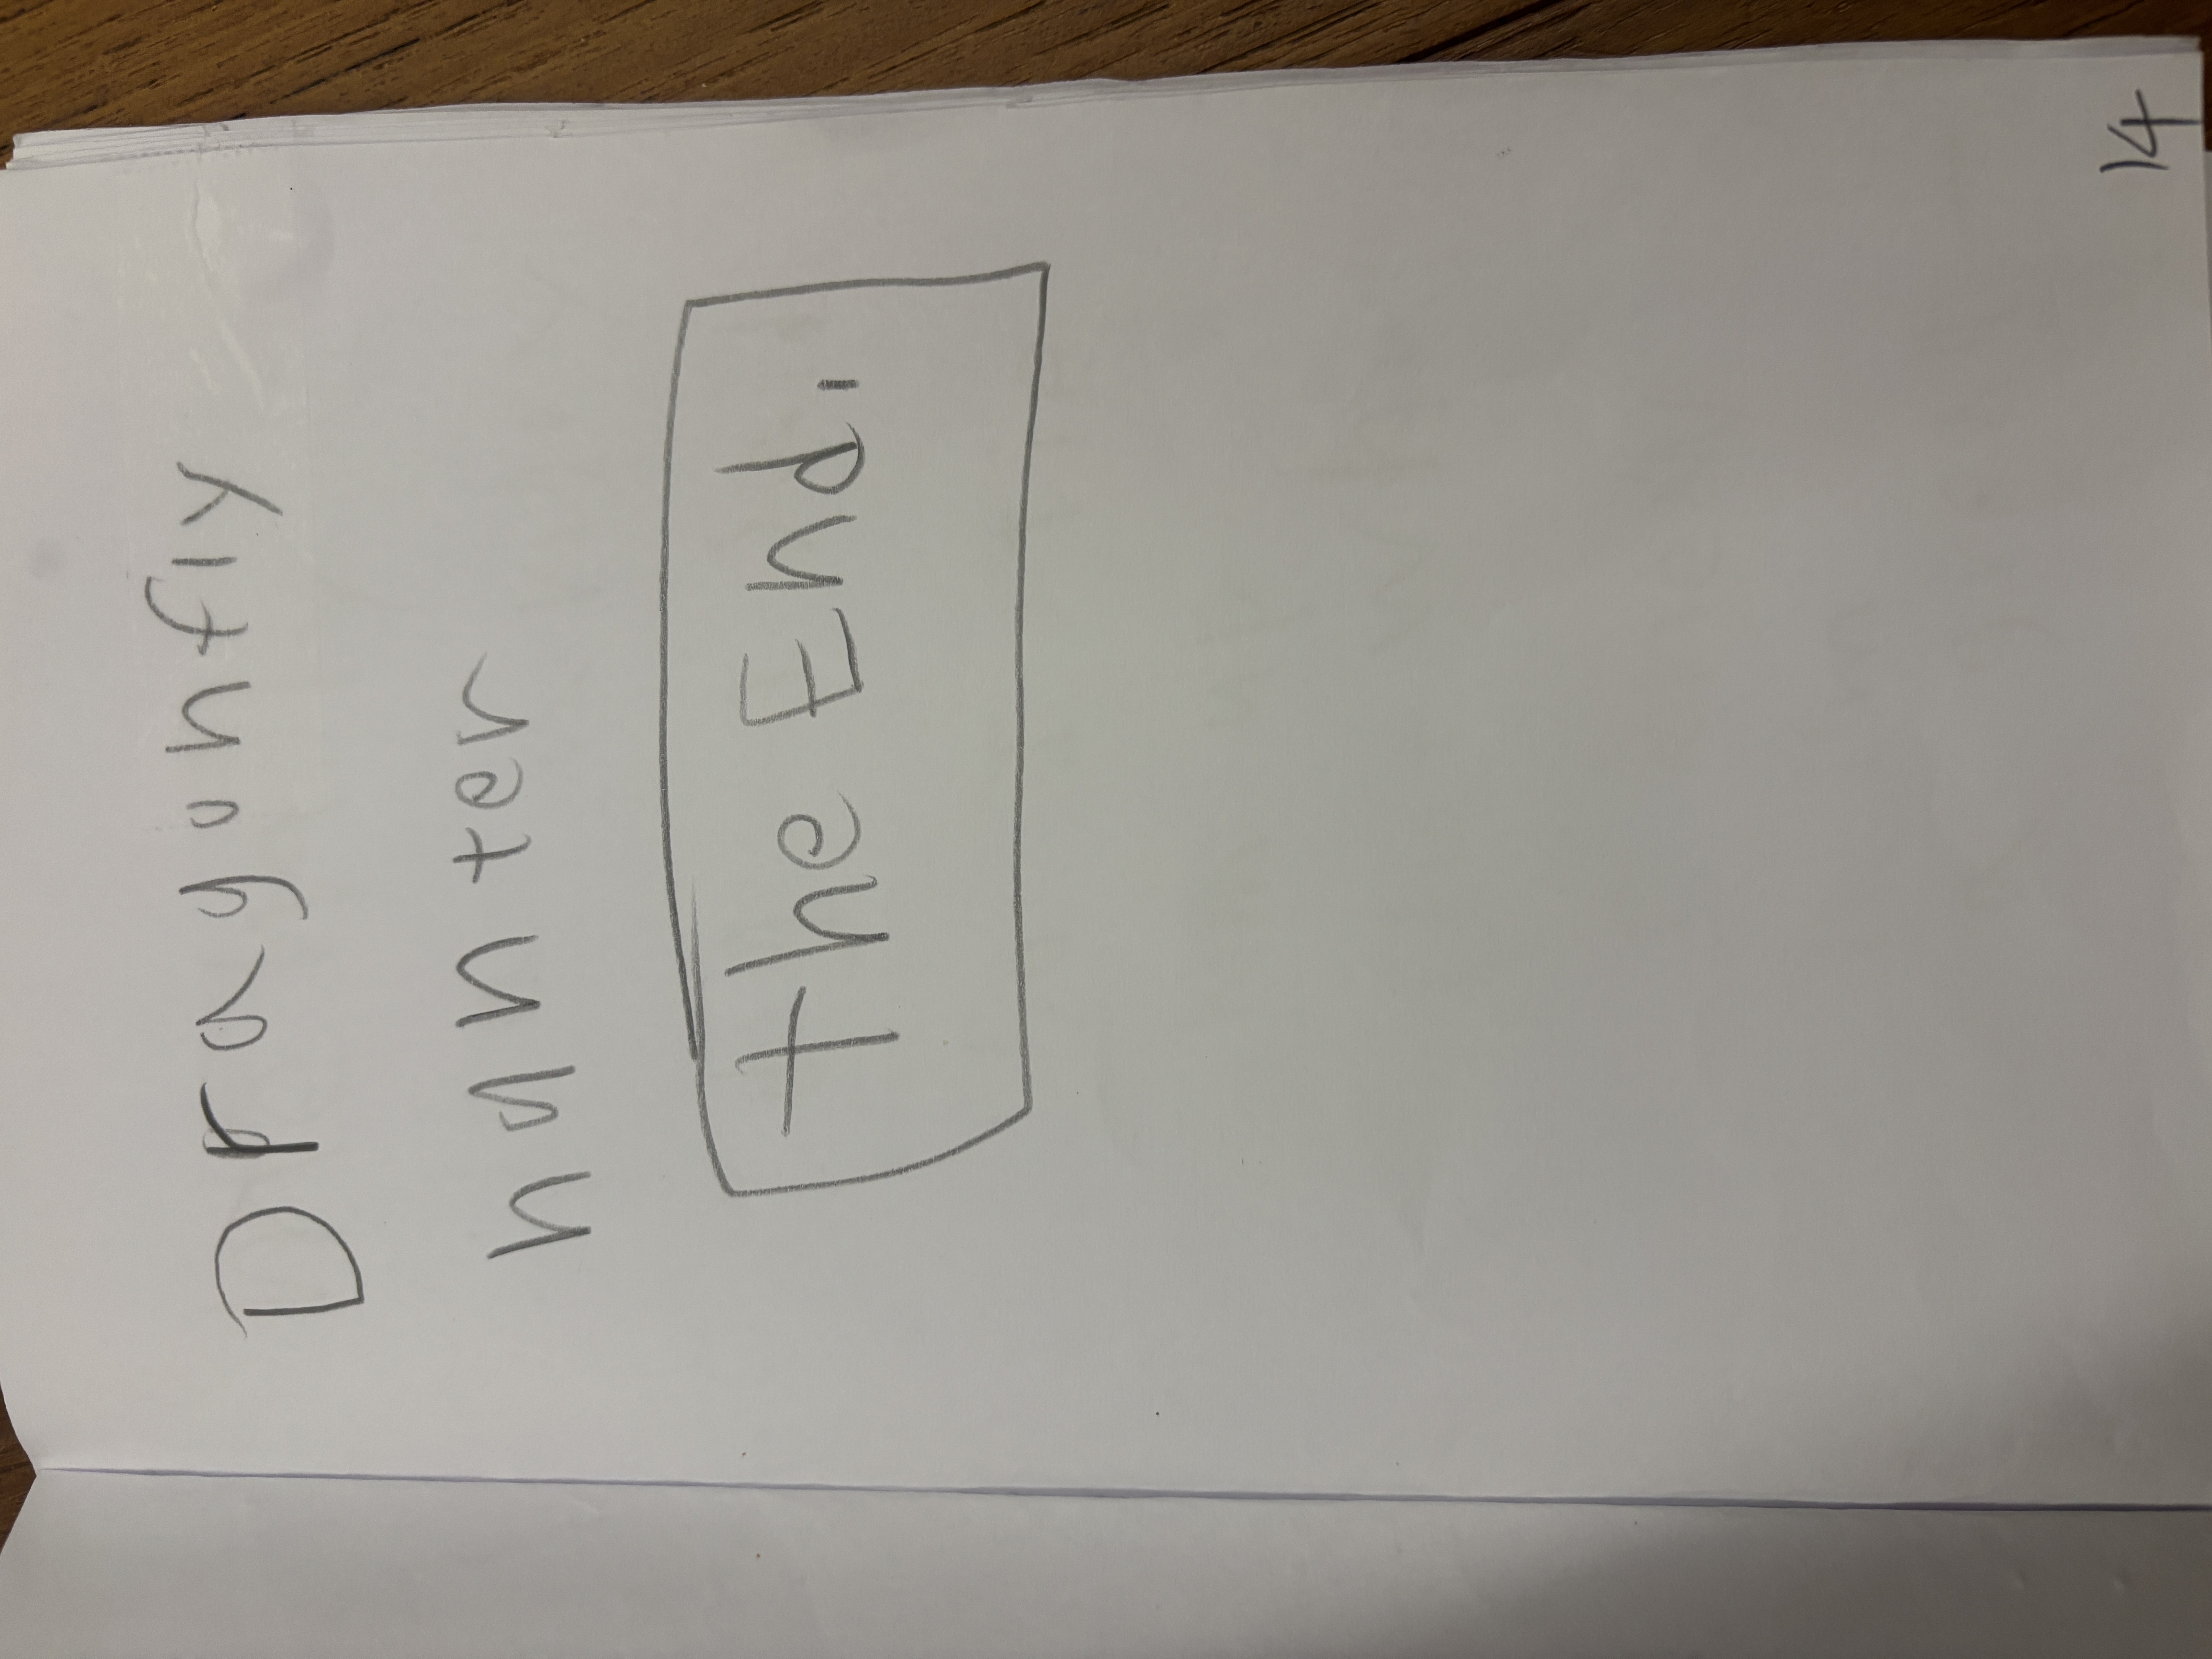 Dragonfly
hunter
the End.
14